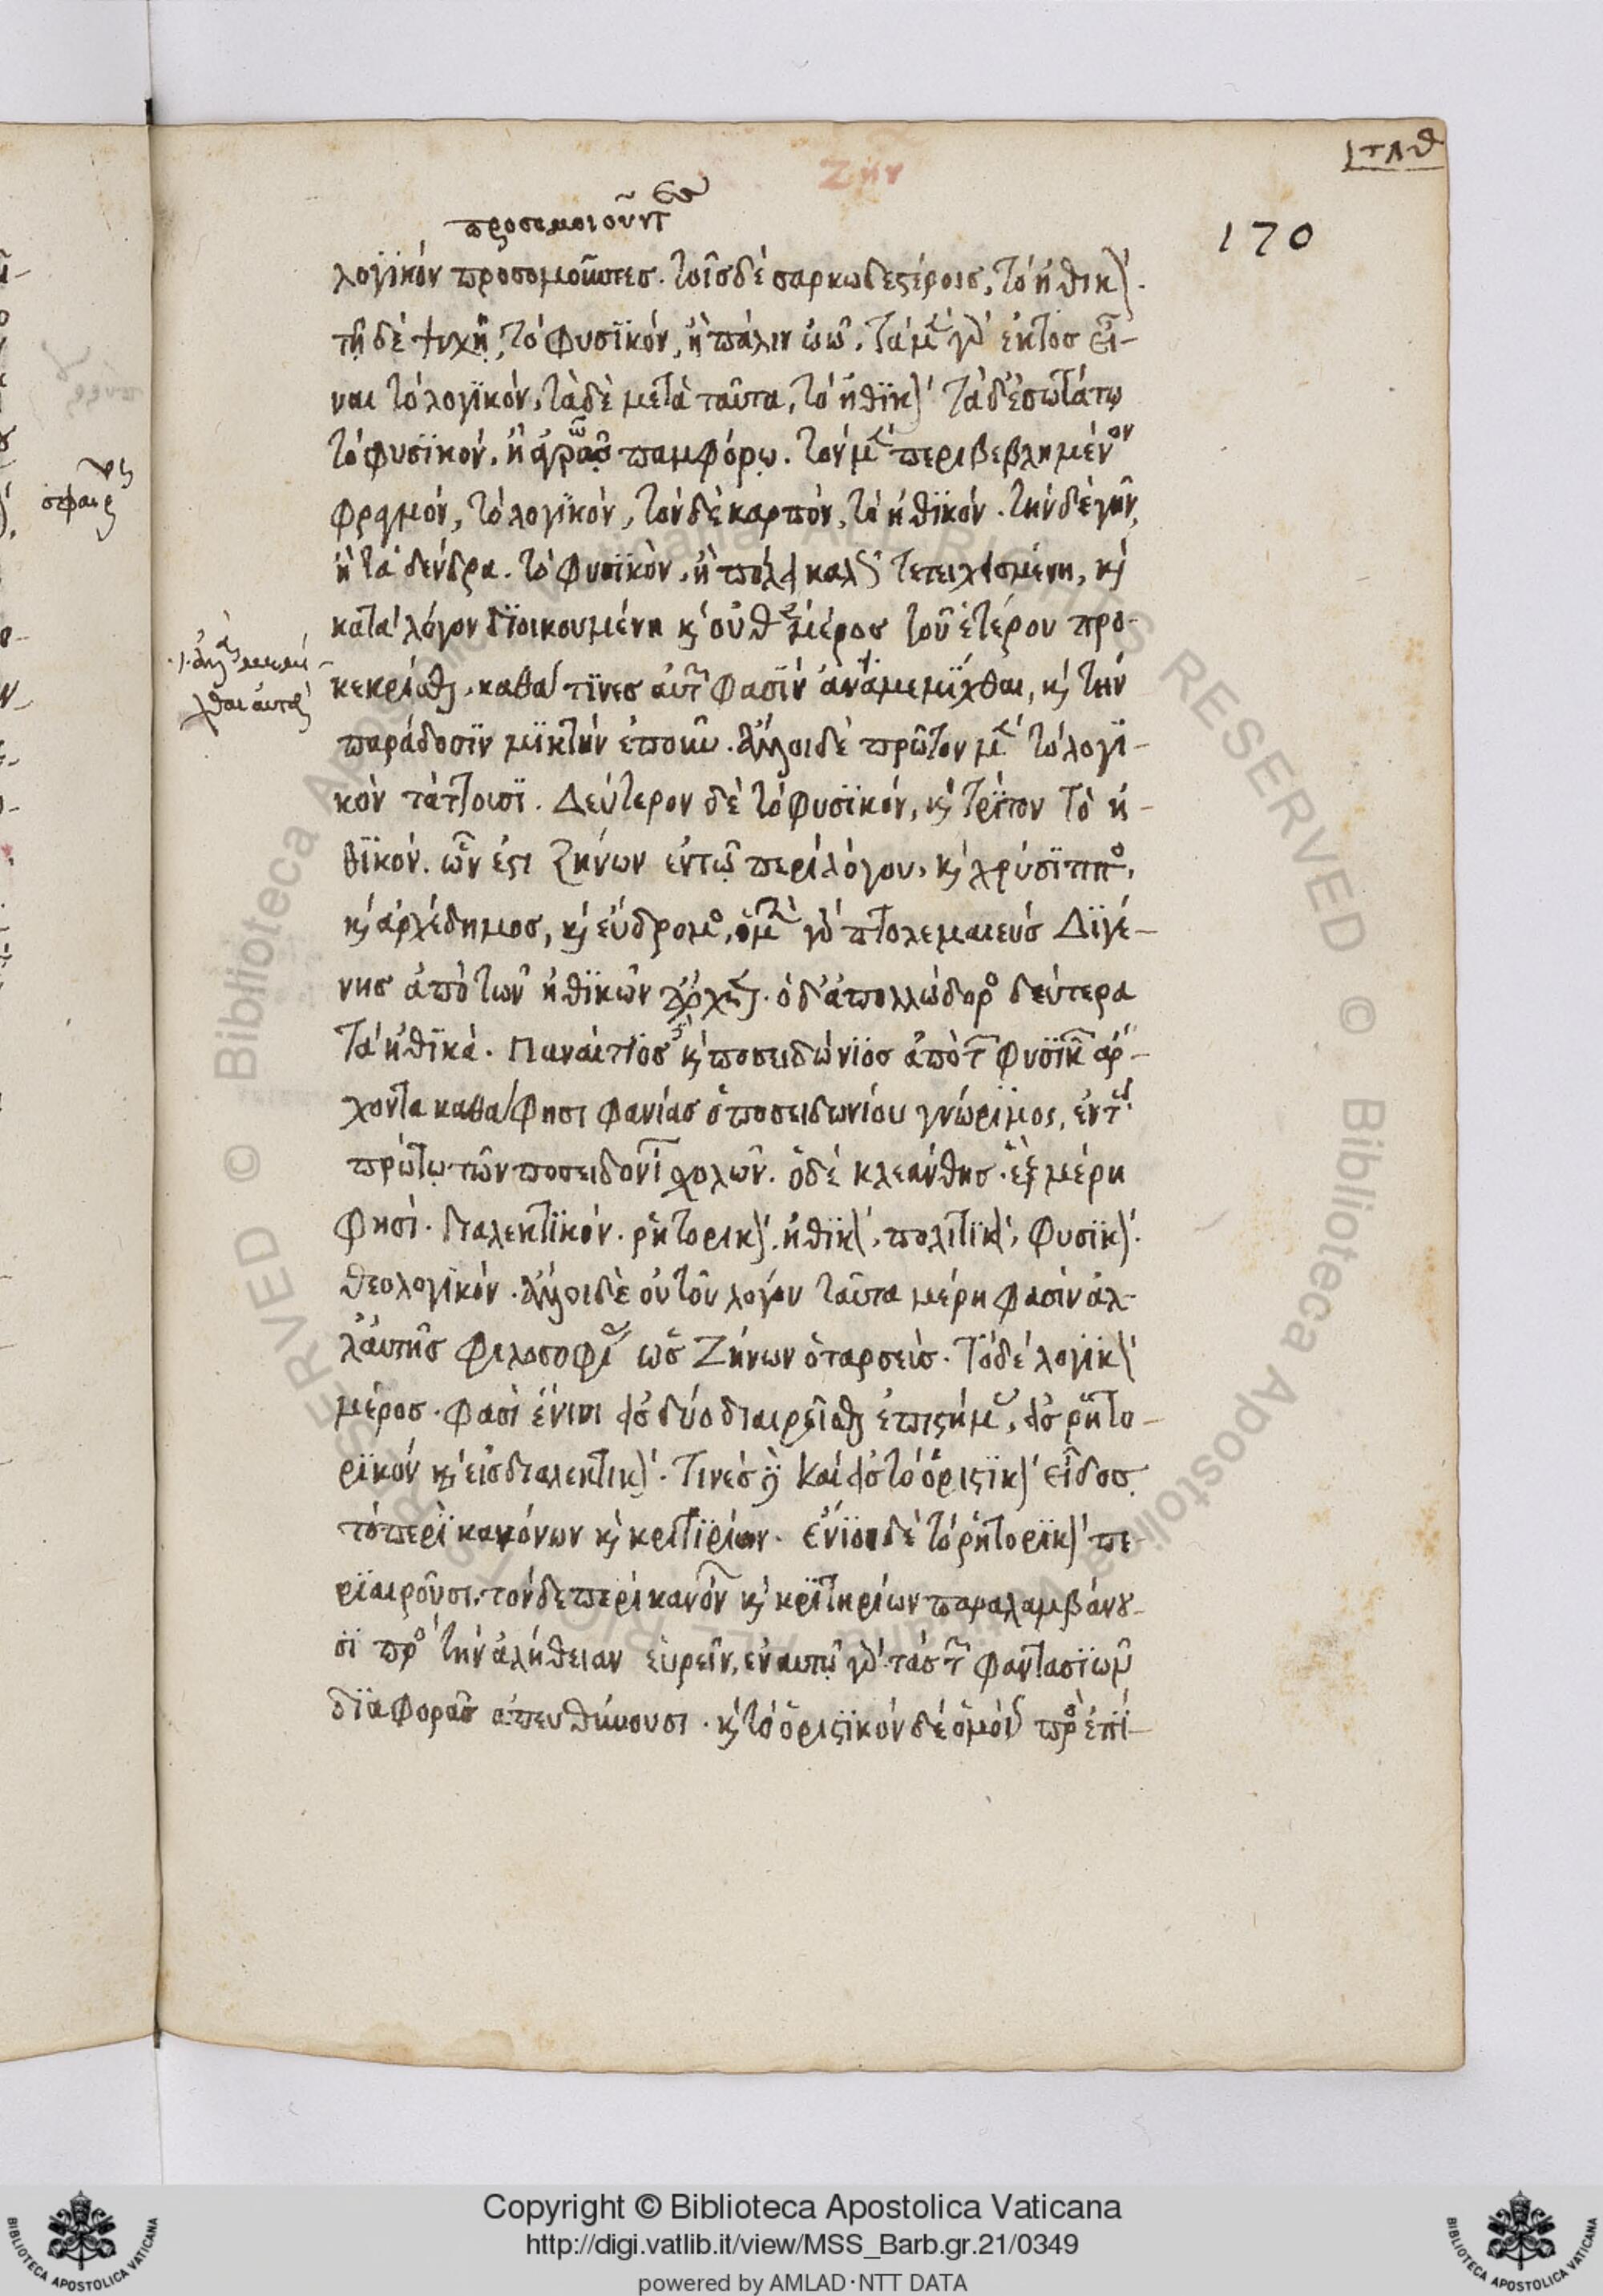 Ζην
τλθ
170
προσομοιοῦντες
λογϊκόν προσομοιοῦντες. τοῖς δὲ σαρκωδεστέροις, τὸ ἠθικόν.
τῇ δὲ ψυχῇ, τὸ φυσϊκόν, ἢ πάλιν ὠῷ. τὰ μὲν γὰρ ἐκτὸς εἶ-
ναι τὸ λογϊκόν, τὰ δὲ μετὰ ταῦτα, τὸ ἠθϊκόν τὰ δ' ἐσωτάτω
τὸ φυσϊκόν. ἢ ἀγρῷ παμφόρῳ. τὸν μὲν περιβεβλημένον
φραγμόν, τὸ λογϊκόν, τὸν δὲ καρπόν, τὸ ἠθϊκόν. τὴν δὲ γῆν
ἢ τὰ δένδρα. τὸ φυσϊκὸν. ἢ πόλει καλῶς τετειχισμένη, καὶ
κατὰ λόγον δϊοικουμένη καὶ οὐθὲν μέρος τοῦ ἑτέρου προ-
κεκρίσθαι. καθά τϊνες αὐτῶν φασϊν ἀναμεμϊχθαι, καὶ τὴν
παράδοσϊν μϊκτὴν ἐποίουν. ἄλλοι δὲ πρῶτον μὲν τὸ λογϊ-
κὸν τάττουσϊ. Δεύτερον δὲ τὸ φυσϊκόν, καὶ τρϊτον τὸ ἠ-
θϊκόν. ὧν ἐστι Ζήνων ἐν τῷ περὶ λόγου, καὶ χρύσϊππος,
καὶ ἀρχέδημος, καὶ εὔδρομος, ὁ μὲν γὰρ πτολεμαιεὺς Δϊγέ-
νης ἀπὸ τῶν ἠθϊκῶν ἄρχεται. ὁ δ' ἀπολλώδορος δεύτερα
τὰ ἠθϊκά. Παναίτϊος δὲ καὶ ποσειδώνϊος ἀπὸ τῶν φυσϊκῶν ἄρ-
χονται καθά φησι φανίας ὁ ποσειδωνίου γνώρϊμος, ἐν τῷ
πρώτῳ τῶν ποσειδονίων σχολῶν. ὁ δὲ κλεάνθης. ἓξ μέρη
φησὶ. διαλεκτϊκόν. ῥητορικόν. ἠθϊκόν, πολιτϊκόν, φυσϊκόν.
θεολογϊκόν. ἄλλοι δὲ οὐ τοῦ λόγου ταῦτα μέρη φασὶν ἀλ-
λ' αὐτῆς φιλοσοφίας ὡς Ζήνων ὁ ταρσεὺς. τὸ δὲ λογϊκόν
μέρος. φασὶ ἔνιοι εἰς δύο διαιρεῖσθαι ἐπιστήμας, εἰς ῥητο-
ρϊκὸν καὶ εἰς διαλεκτικόν. τινὲς δὲ καὶ εἰς τὸ ὁριστϊκόν εἶδος
τὸ περὶ κανόνων καὶ κριτϊρίων. ἔνϊοι δὲ τὸ ῥητορϊκόν πε-
ρϊαιροῦσι, τὸν δὲ περὶ κανόνων καὶ κρϊτηρίων παραλαμβάνου-
σϊ πρὸς τὴν ἀλήθειαν εὑρεῖν, ἐν αυτῷ γὰρ τὰς τῶν φαντασϊῶν
δϊαφορὰς ἀπευθύνουσι. καὶ τὸ ὁριστϊκὸν δὲ ὁμοίως πρὸς ἐπϊ-
Copyright © Biblioteca Apostolica Vaticana
http://digi.vatlib.it/view/MSS_Barb.gr.21/0349
powered by AMLAD·NTT DATA